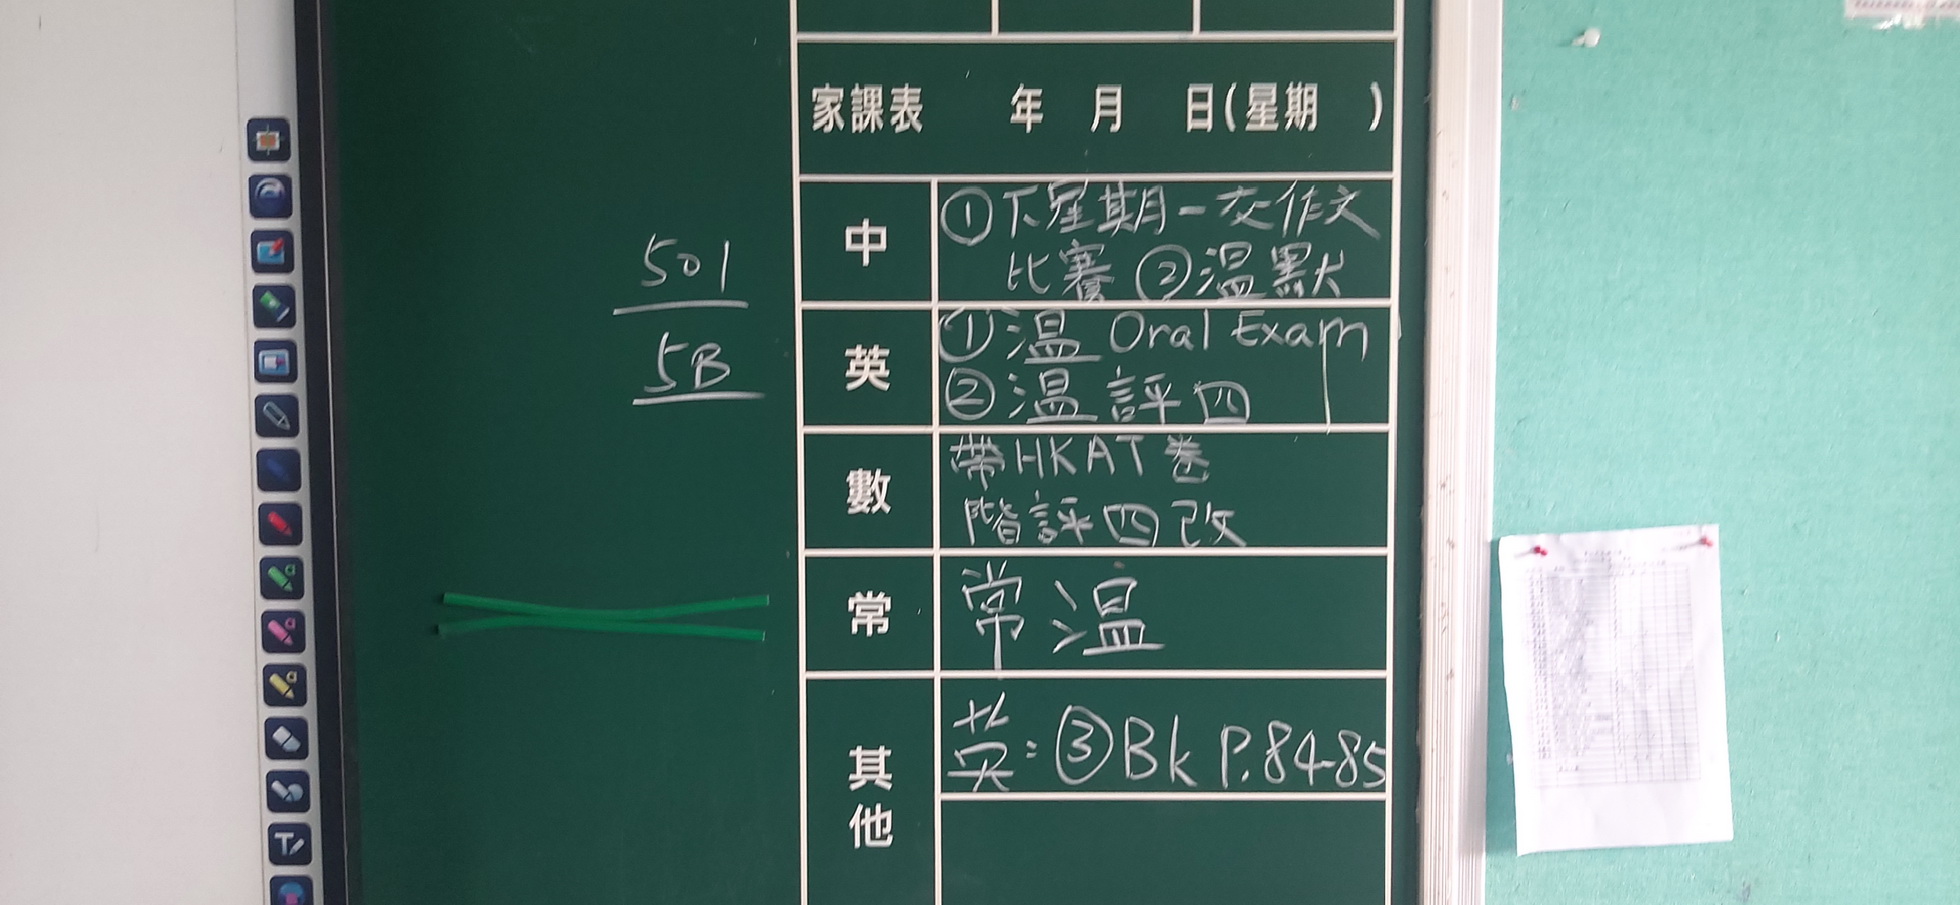 家課表 年 月 日(星期 )
501
5B
中
①下星期一交作文
比賽 ②溫默
英
①溫 Oral Exam
②溫評四
數
帶HKAT卷
階評四改
常
常溫
其他
英:③Bk P.84-85